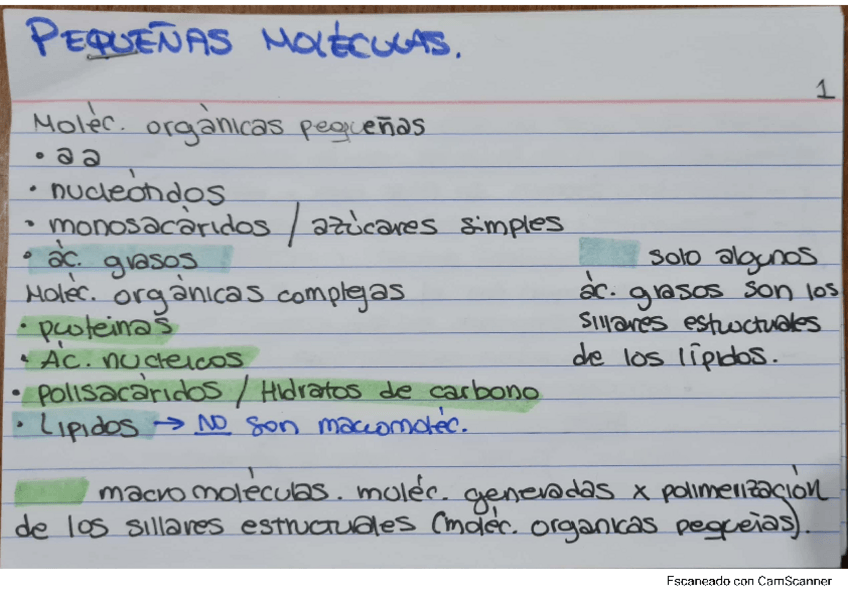 PEQUEÑAS MOLÉCULAS.
1
Moléc. orgànicas pequeñas
• aa
• nucleótidos
• monosacàridos / azúcares simples
• àc. grasos
Moléc. orgànicas complejas
• proteinas
• Ác. nucleicos
• polisacàridos / Hidratos de carbono
• Lípidos → NO son macromoléc.
solo algunos
àc. grasos son los
sillares estructuales
de los lípidos.
macromoléculas. moléc. generadas x polimerización
de los sillares estructuales (moléc. organicas pequeñas).
Escaneado con CamScanner